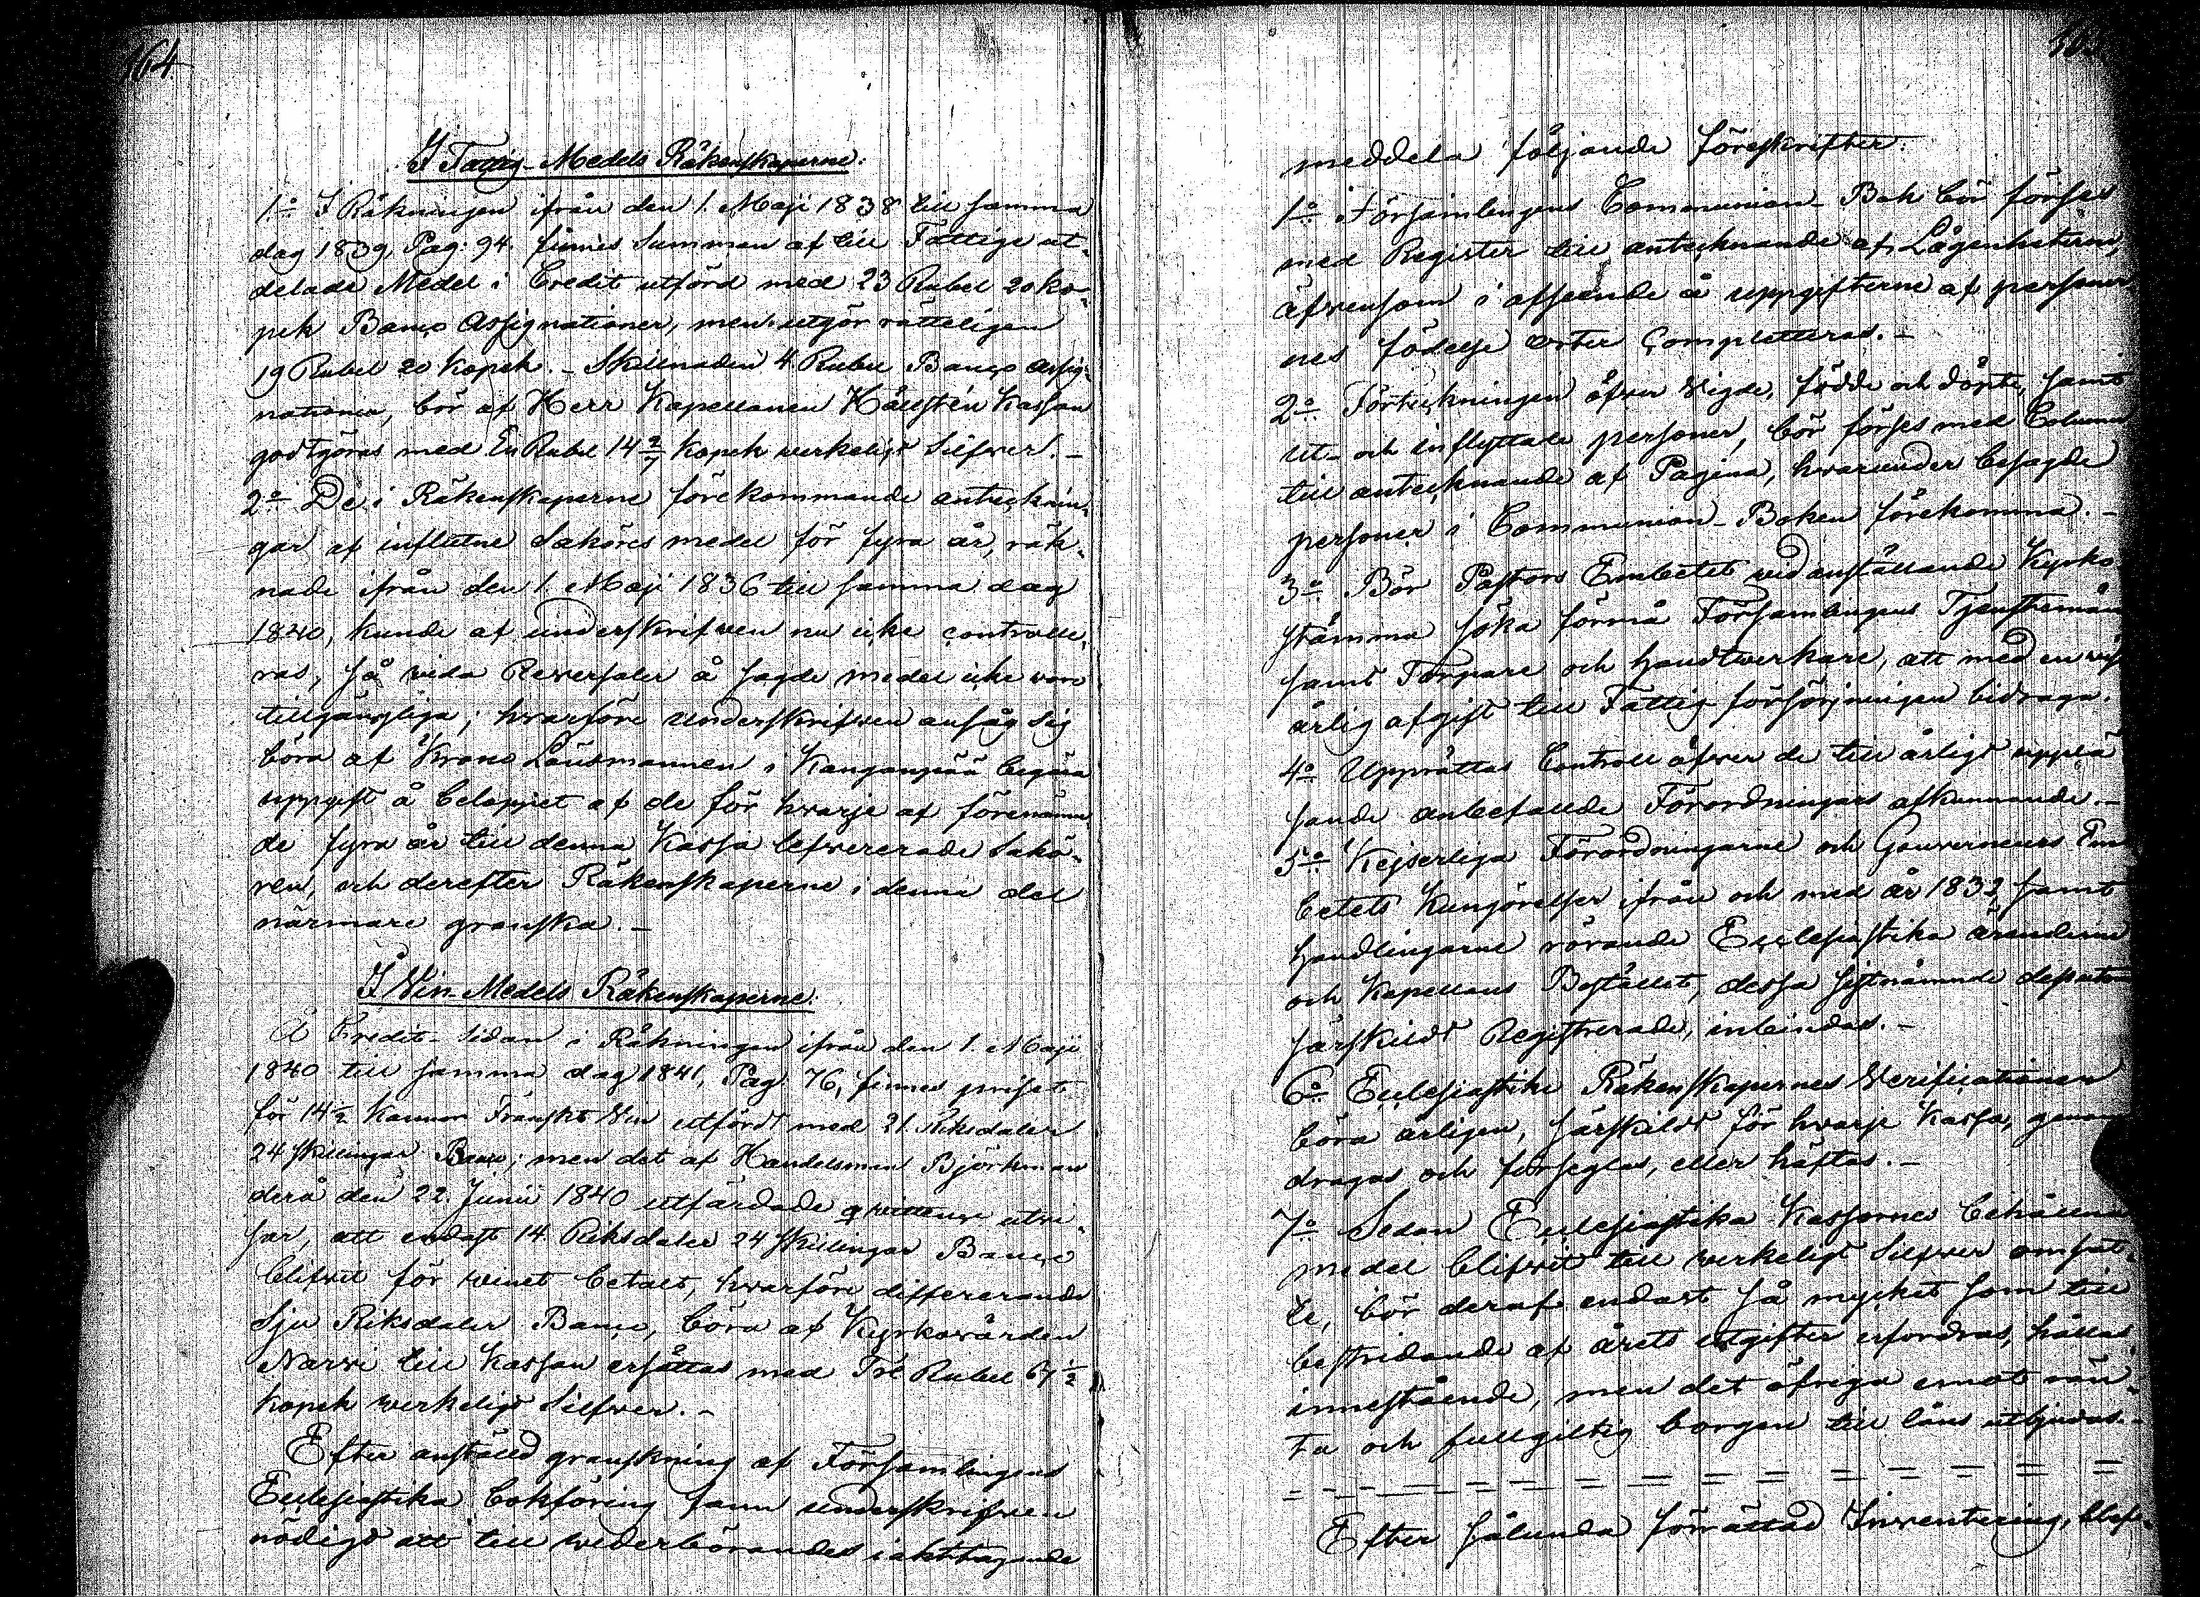 164
I Fattig-Medels Räkenskaperne.
1:o I Räkningen ifrån den 1. Maji 1838 till samma
dag 1839, Pag: 94. finnes Summan af till Fattige ut-
delade Medel i Credit utförd med 23 Rubel 20 ko-
pek Banco Assignationer, men utgör rätteligen
19 Rubel 20 Kopek. - Skillnaden 4 Rubel Banco Assig-
nationer, bör af Herr Kapellanen Hällstén Kassan
godtgöras med En Rubel 14 2/7 Kopek verkeligt Silfver. -
2:o De i Räkenskaperne förekommande antecknin-
gar af influtne Saköres medel för fyra år, räk-
nade ifrån den 1. Maji 1836 till samma dag
1840, kunde af underskrifven nu icke controlle-
ras, så vida Reversaler å sagde medel icke voro
tillgänglige; hvarföre Underskrifven ansåg sig
böra af Krono Länsmannen i Kanganpää begära
uppgift å beloppet af de för hvarje af förenämn-
de fyra år till denna Kassa lefvererade Sakö-
ren, och derefter Räkenskaperne i denna del
närmare granska. -
I Vin-Medels Räkenskaperne.
Å Credit-Sidan i Räkningen ifrån den 1. Maji
1840 till samma dag 1841, Pag. 76, finnes priset
för 14 1/2 Kannor Franskt Vin utfördt med 21 Riksdaler
24 Skillingar Banco; men det af Handelsman Björkman
derå den 22. Junii 1840 utfärdade qvittence utvi-
sar, att endast 14 Riksdaler 24 Skillingar Banco
blifvit för vinet betalt, hvarföre differerande
Sju Riksdaler Banco, böra af Kyrkovärden
Narvi till Kassan ersättas med Tre Rubel 67 1/2
Kopek verkeligt Silfver. -
Efter anställd granskning af Församlingens
Ecclesiastika bokföring fann underskrifven
nödigt att till vederbörandes iakttagande
meddela följande föreskrifter.
1:o Församlingens Communion-Bok bör förses
med Register till antecknande af Lägenheterne,
äfvensom i afseende å uppgifterne af personer
nes födelse orter Completteras. -
2:o Förteckningen öfver Vigde, födde och döpte, samt
ut- och inflyttade personer, bör förses med Column
till antecknande af Pagina, hvarunder besagde
personer i Communion-Boken förekomma. -
3:o Bör Pastors Embetet vid anställande Kyrko-
stämma söka förmå Församlingens Tjenstemän
samt Torpare och handtverkare, att med en viss
årlig afgift till Fattig försörjningen bidraga.
4:o Upprättas Controll öfver de till årligt upplä
sande anbefallde Förordningars afkunnande. -
5:o Kejserliga Förordningarne och Gouverneurs Em
betets Kungörelser ifrån och med år 1832, samt
handlingarne rörande Ecclesiastika ärenderne
och Kapellans Bostället, dessa sistnämnde dessutom
särskildt Registrerade, inbindas. -
6:o Ecclesiastike Räkenskapernes Verificationer
böra årligen, särskildt för hvarje Kassa, genom
dragas och förseglas, eller häftas. -
7:o Sedan Ecclesiastika Kassornes behållna
medel blifvit till verkeligt Silfver omsat-
te, bör deraf endast så mycket som till
bestridande af årets utgifter erfordras, hållas
innestående, men det öfriga emot rän-
ta och fullgiltig borgen till låns utbjudas. -
Efter sålunda förrättad Inventering, blef-